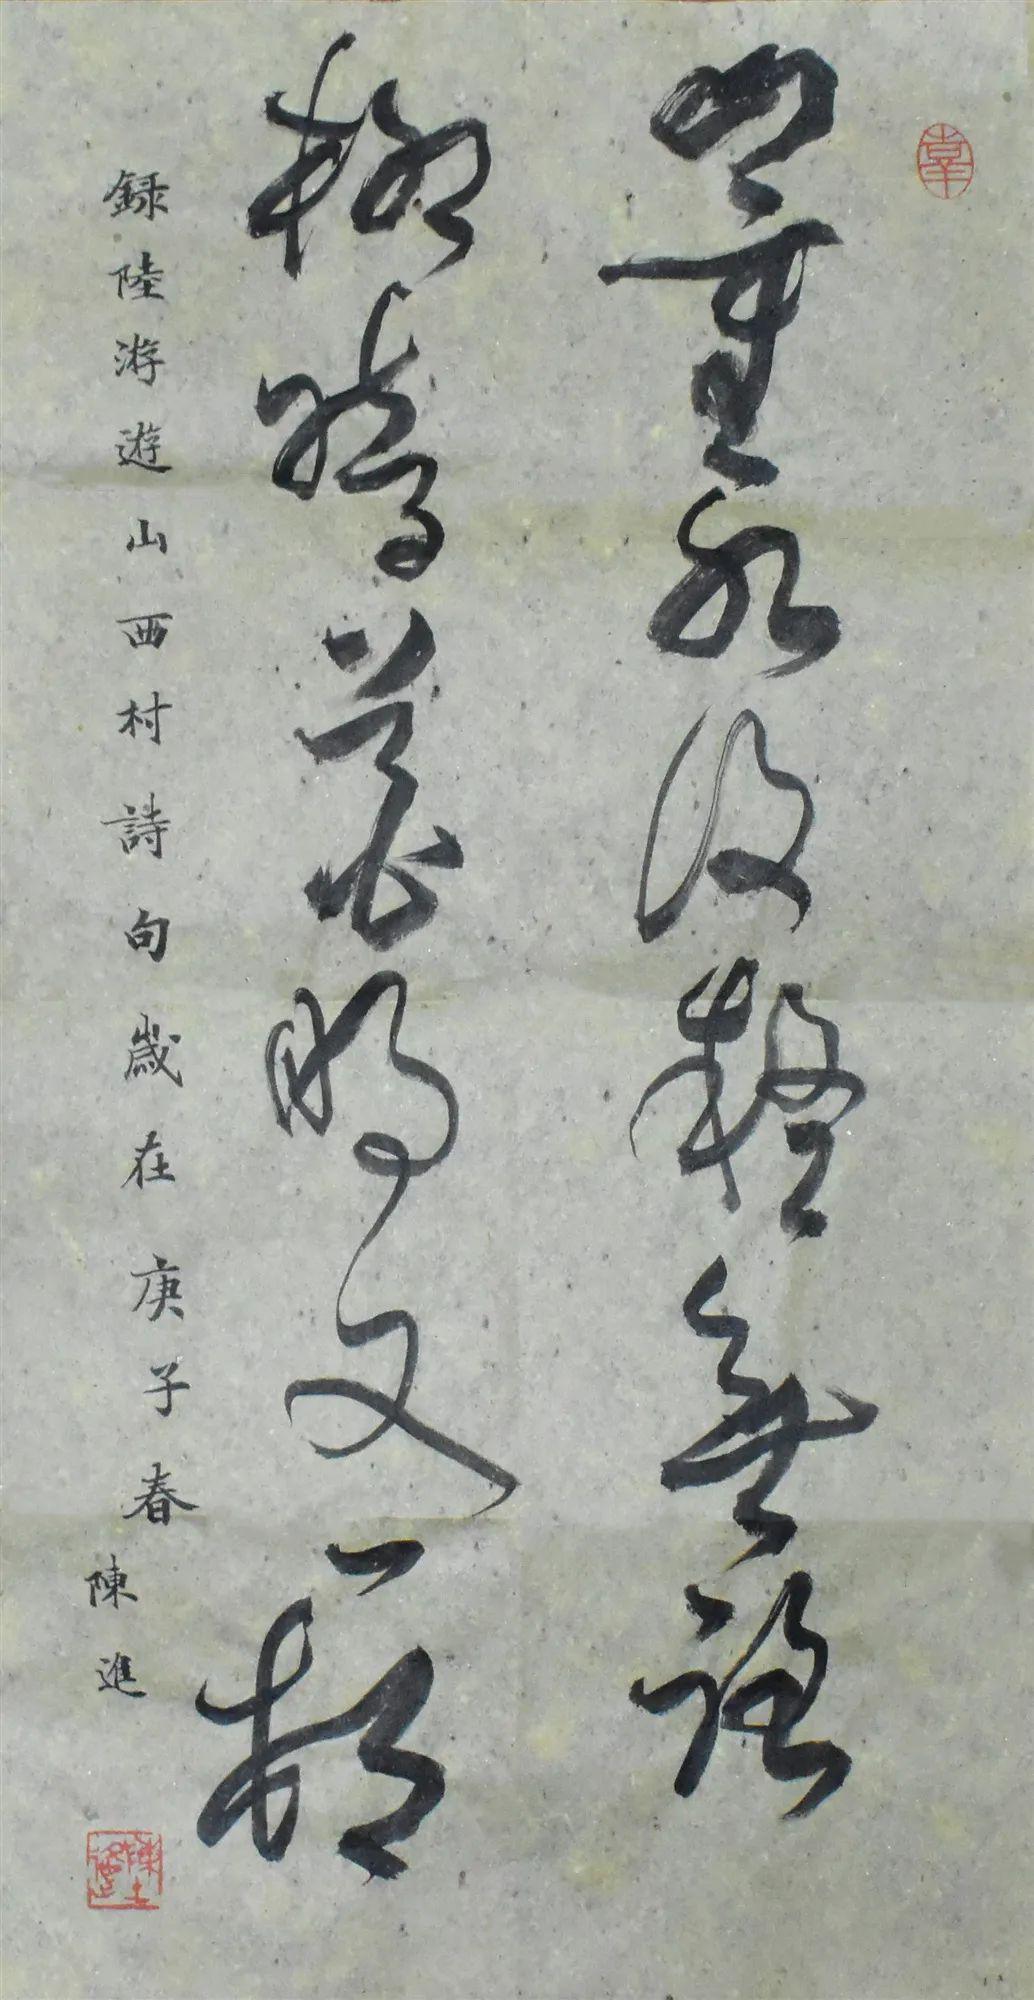 山重水復疑無路
柳暗花明又一村
録陸游遊山西村詩句歲在庚子春
陳進